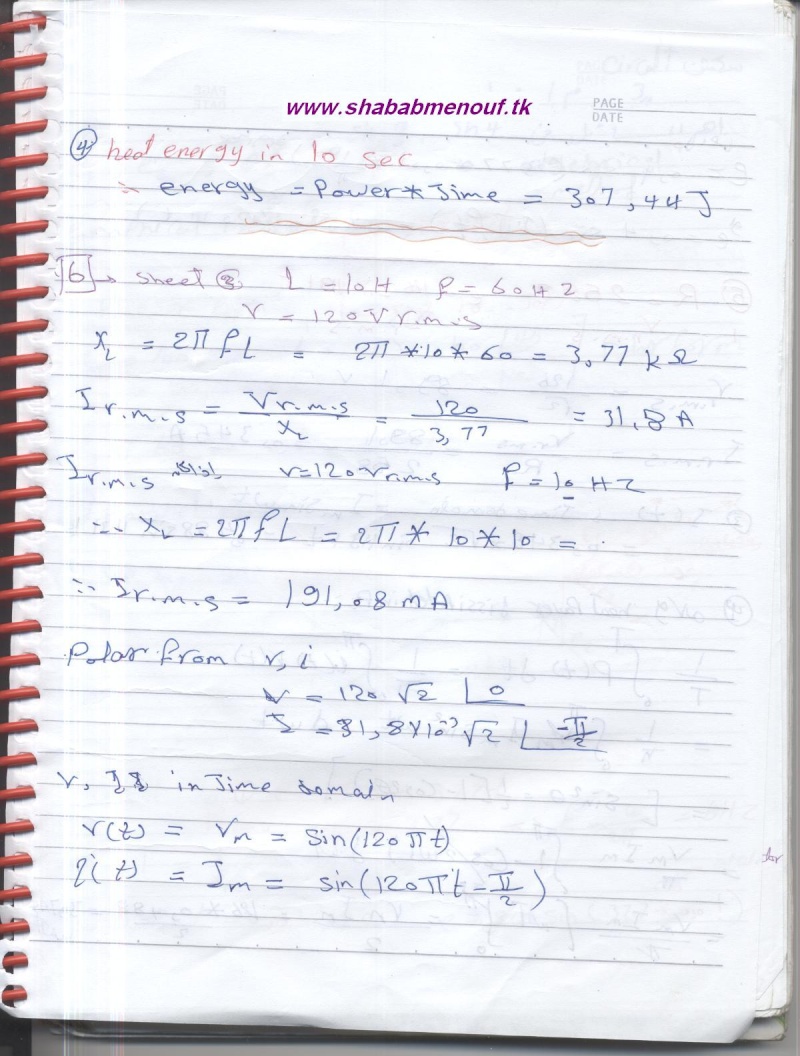 www.shababmenouf.tk
PAGE
DATE
④ heat energy in 10 sec
∴ energy = Power * Time = 307,44 J
[6] → sheet L = 10 H f = 60 HZ
V = 120 V r.m.s
X_L = 2π f L = 2π * 10 * 60 = 3,77 kΩ
I r.m.s = V r.m.s / X_L = 120 / 3,77 = 31,8 A
I r.m.s V = 120 V r.m.s f = 10 HZ
∵ X_L = 2π f L = 2π * 10 * 10 =
∴ I r.m.s = 191,08 mA
Polar from v, i
V = 120 √2 ∠0
I = 31,8 * 10⁻³ √2 ∠-π/2
in Time domain
v(t) = Vm = sin(120πt)
i(t) = Im = sin(120πt - π/2)